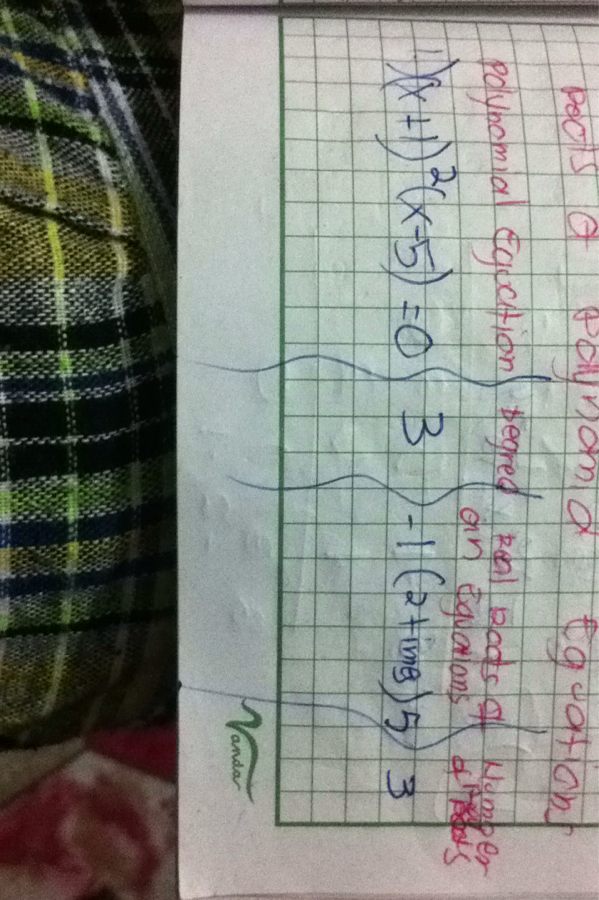 Roots of polynomial Equation
polynomial Equation Degree real Roots of an Equations Number of Roots
1.) (x+1)²(x-5) = 0 3 -1 (2 time) 5 3
Vanda